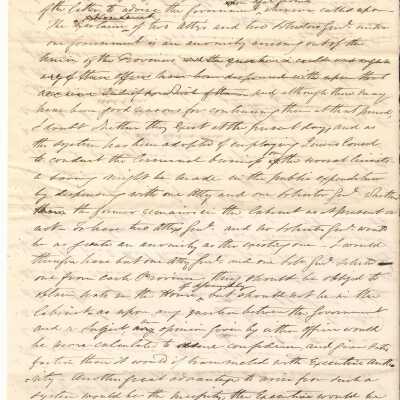 of the latter to advise the Government when called upon
The appointment of two Attys and two Solicitors Genl. under
one Government is an anomaly arising out of the
Union of the Provinces and the question is could and
of these offices have been dispensed with upon that
and although there may
have been good reasons for continuing them at that period,
I doubt whether they exist at the present day, and as
the system has been adopted of employing Queens Counsel
to conduct the Criminal business of the several Circuits
a saving might be made in the public expenditure
by dispensing with one Atty and one Solicitor Genl. Whether
the former remains in the Cabinet as at present or
not to have two Attys Genl. and no Solicitor Genl. would
be as great an anomaly as the existing one. I would
therefore have but one Atty Genl. and one Solr. Genl. selected
one from each Province, they should be obliged to
have seats in the House of Assembly but should not be in the
Cabinet as upon any question between the Government
and a Subject an opinion given by a Law officer would
be more calculated to confidence and give satis
faction than it would if connected with the Executive Auth
ority. Another great advantage to arise from such a
system would be the the Executive would be